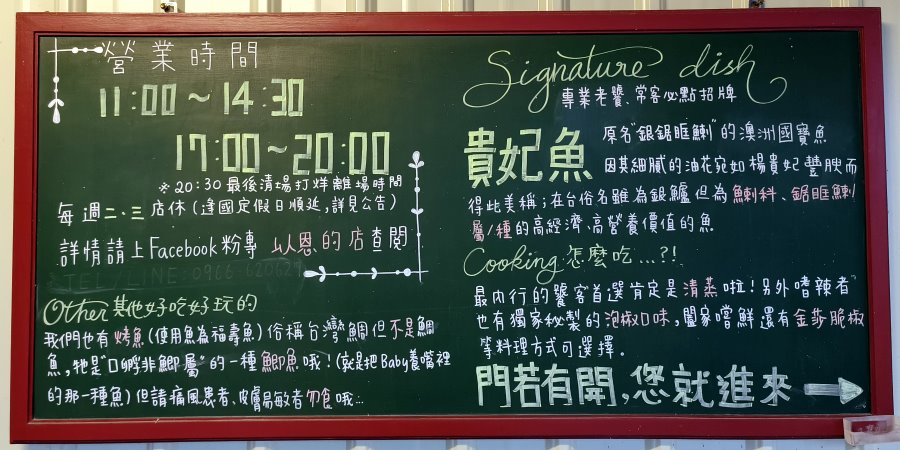 營業時間
11:00～14:30
17:00～20:00
※20:30 最後清場打烊離場時間
每週二、三 店休（逢國定假日順延，詳見公告）
詳情請上Facebook粉專 以恩的店查閱
Other 其他好吃好玩的
我們也有烤魚（使用魚為福壽魚）俗稱台灣鯛但不是鯛
魚，牠是"口孵非鯽屬"的一種鯽魚哦！（就是把Baby養嘴裡
的那一種魚）但請痛風患者、皮膚易敏者勿食哦...
Signature dish
專業老饕、常客必點招牌
貴妃魚 原名"銀鋸眶鯻"的澳洲國寶魚
因其細膩的油花宛如楊貴妃豐腴而
得此美稱；在台俗名雖為銀鱸但為鯻科、鋸眶鯻
屬/種的高經濟、高營養價值的魚
Cooking 怎麼吃...?!
最內行的饕客首選肯定是清蒸啦！另外"嗜辣者"
也有獨家秘製的泡椒口味，闔家嚐鮮還有金莎脆椒
等料理方式可選擇。
門若有開，您就進來